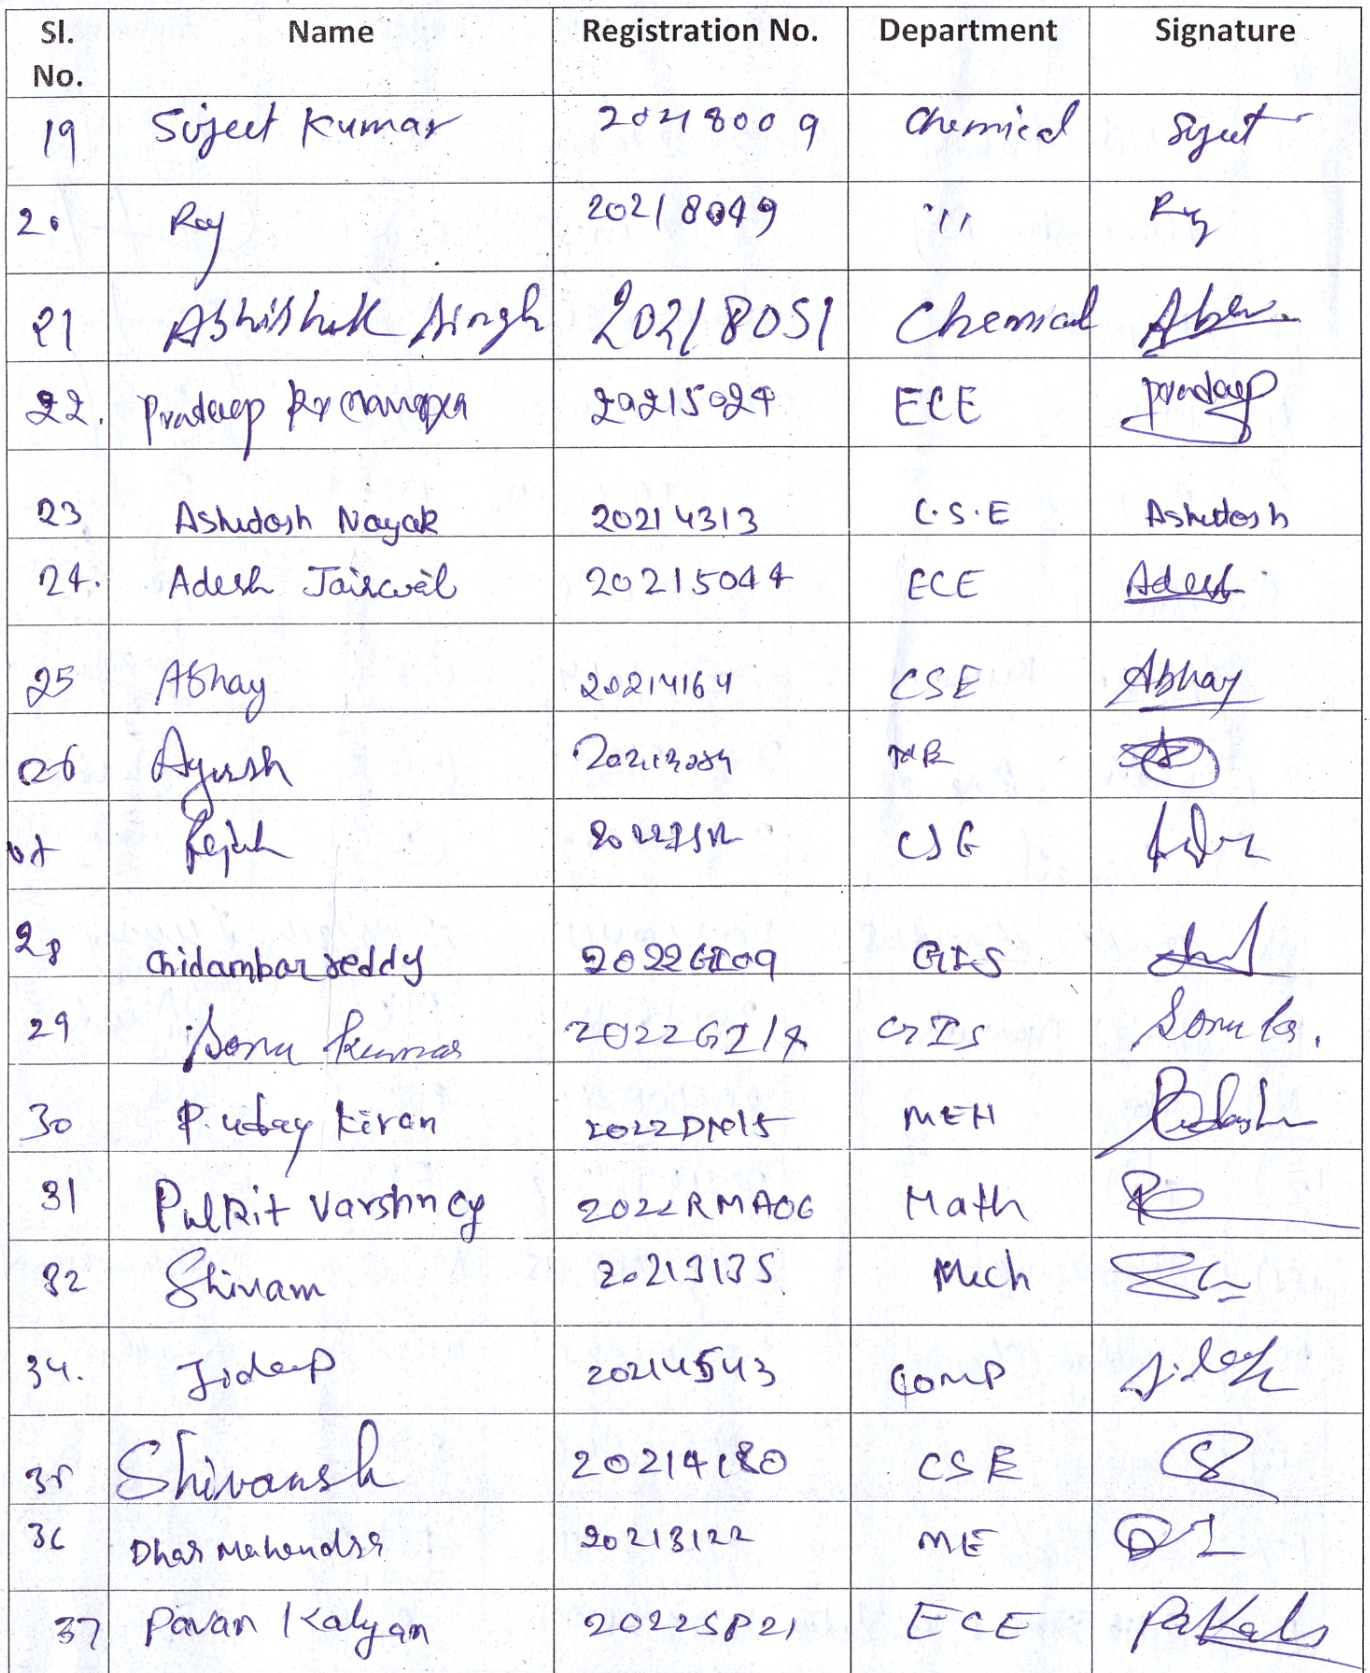 Sl. No. Name Registration No. Department Signature
19 Sujeet Kumar 20218009 Chemical Sujeet
20 Raj 20218049 " Raj
21 Abhishek Singh 20218051 Chemical
22. Pradeep Kr 20215024 ECE Pradeep
23 Ashutosh Nayak 20214313 C.S.E Ashutosh
24. Adesh Jaiswal 20215044 ECE Adesh
25 Abhay 20214164 CSE Abhay
26 Ayush
CSE
28 Chidambar reddy 2022GI09 GIS
29 Sonu Kumar 2022GI14 GIS Sonu Kr.
30 P. uday kiran MEH
31 Pulkit Varshney 2022RMA06 Math
32 Shivam 20213135 Mech
34. Jideep 20214543 COMP
35 Shivansh 20214180 CSE
36 Dhar Mahendra 20213122 ME
37 Pavan Kalyan 2022SP21 ECE